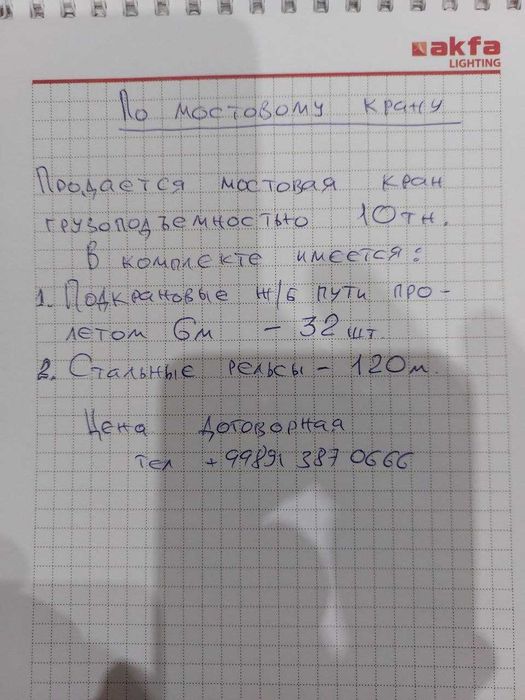 akfa
LIGHTING
По мостовому крану
Продается мостовая кран
грузоподъемностью 10тн.
В комплекте имеется:
1. Подкрановые ж/б пути про-
летом 6м - 32 шт.
2. Стальные рельсы - 120м.
Цена договорная
тел +99891 387 0666